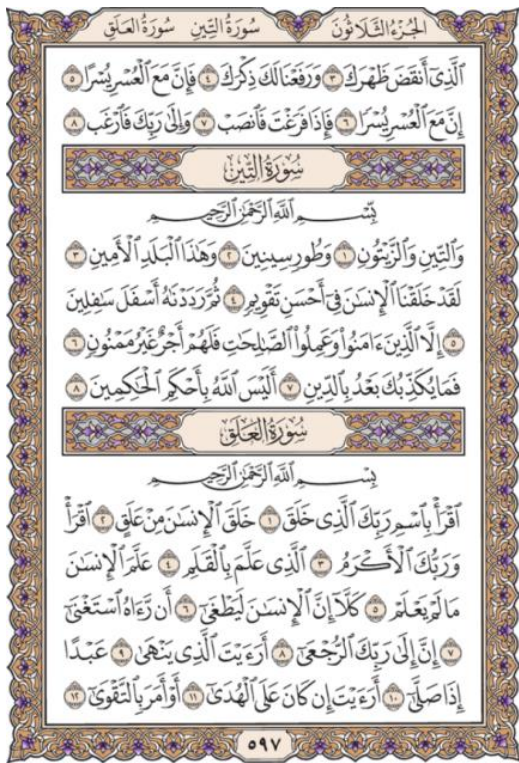 سُورَةُ التِّينِ سُورَةُ العَلَقِ الجُزْءُ الثَّلَاثُونَ
ٱلَّذِىٓ أَنقَضَ ظَهْرَكَ ٣ وَرَفَعْنَا لَكَ ذِكْرَكَ ٤ فَإِنَّ مَعَ ٱلْعُسْرِ يُسْرًا ٥
إِنَّ مَعَ ٱلْعُسْرِ يُسْرًا ٦ فَإِذَا فَرَغْتَ فَٱنصَبْ ٧ وَإِلَىٰ رَبِّكَ فَٱرْغَب ٨
سُورَةُ التِّينِ
بِسْمِ ٱللَّهِ ٱلرَّحْمَٰنِ ٱلرَّحِيمِ
وَٱلتِّينِ وَٱلزَّيْتُونِ ١ وَطُورِ سِينِينَ ٢ وَهَٰذَا ٱلْبَلَدِ ٱلْأَمِينِ ٣
لَقَدْ خَلَقْنَا ٱلْإِنسَٰنَ فِىٓ أَحْسَنِ تَقْوِيمٍ ٤ ثُمَّ رَدَدْنَٰهُ أَسْفَلَ سَٰفِلِينَ
٥ إِلَّا ٱلَّذِينَ ءَامَنُوا۟ وَعَمِلُوا۟ ٱلصَّٰلِحَٰتِ فَلَهُمْ أَجْرٌ غَيْرُ مَمْنُونٍ ٦
فَمَا يُكَذِّبُكَ بَعْدُ بِٱلدِّينِ ٧ أَلَيْسَ ٱللَّهُ بِأَحْكَمِ ٱلْحَٰكِمِينَ ٨
سُورَةُ العَلَقِ
بِسْمِ ٱللَّهِ ٱلرَّحْمَٰنِ ٱلرَّحِيمِ
ٱقْرَأْ بِٱسْمِ رَبِّكَ ٱلَّذِى خَلَقَ ١ خَلَقَ ٱلْإِنسَٰنَ مِنْ عَلَقٍ ٢ ٱقْرَأْ
وَرَبُّكَ ٱلْأَكْرَمُ ٣ ٱلَّذِى عَلَّمَ بِٱلْقَلَمِ ٤ عَلَّمَ ٱلْإِنسَٰنَ
مَا لَمْ يَعْلَمْ ٥ كَلَّآ إِنَّ ٱلْإِنسَٰنَ لَيَطْغَىٰٓ ٦ أَن رَّءَاهُ ٱسْتَغْنَىٰٓ
٧ إِنَّ إِلَىٰ رَبِّكَ ٱلرُّجْعَىٰٓ ٨ أَرَءَيْتَ ٱلَّذِى يَنْهَىٰ ٩ عَبْدًا
إِذَا صَلَّىٰٓ ١٠ أَرَءَيْتَ إِن كَانَ عَلَى ٱلْهُدَىٰٓ ١١ أَوْ أَمَرَ بِٱلتَّقْوَىٰٓ ١٢
٥٩٧